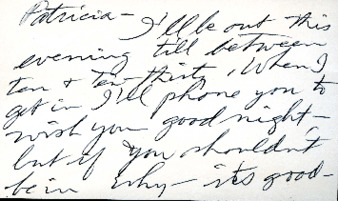 Patricia - I'll be out this
evening till between
ten & ten-thirty, When I
get in I'll phone you to
wish you good night -
but if you shouldn't
be in why - it's good-